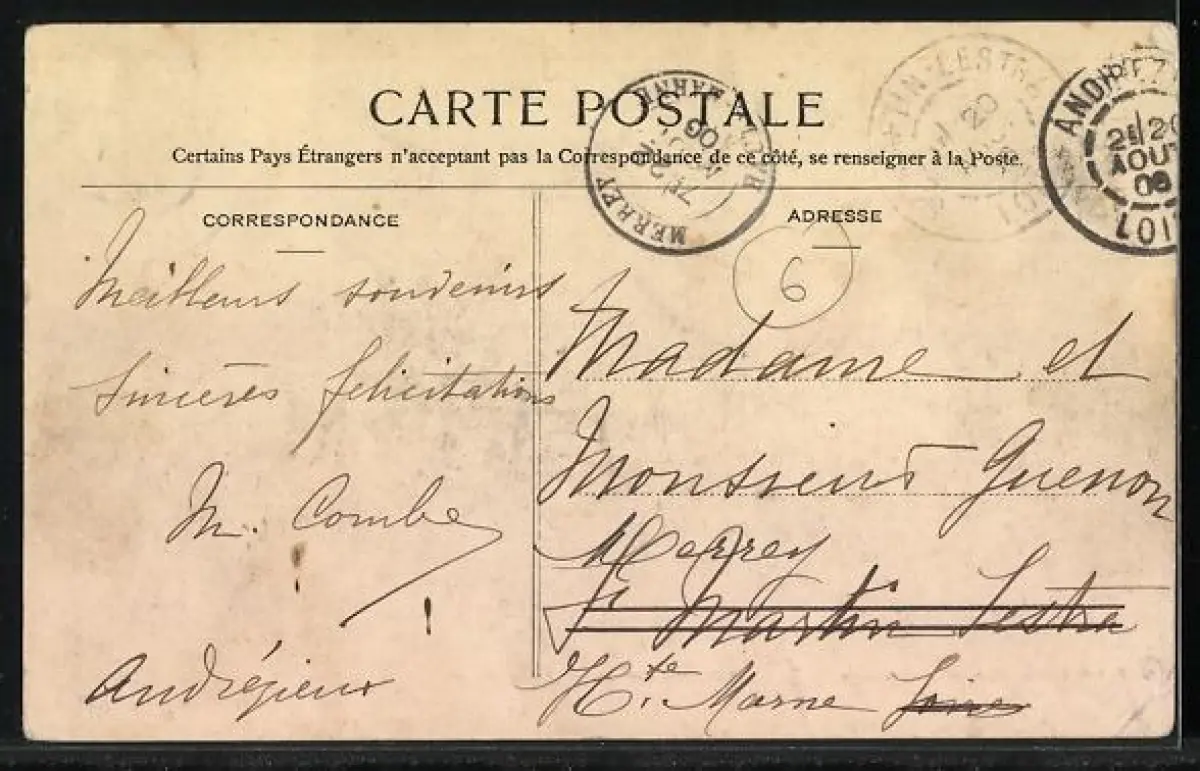 CARTE POSTALE
Certains Pays Étrangers n'acceptant pas la Correspondance de ce côté, se renseigner à la Poste.
CORRESPONDANCE
Meilleurs souvenirs
Sincères félicitations
M. Combe
Andrézieux
ADRESSE
6
Madame et
Monsieur Guenon
Merrey
St Martin Lestra
Hte Marne Loire
MERREY
HTE MARNE
ANDREZ
20
AOUT
08
LOI
UN-LESTRA
20